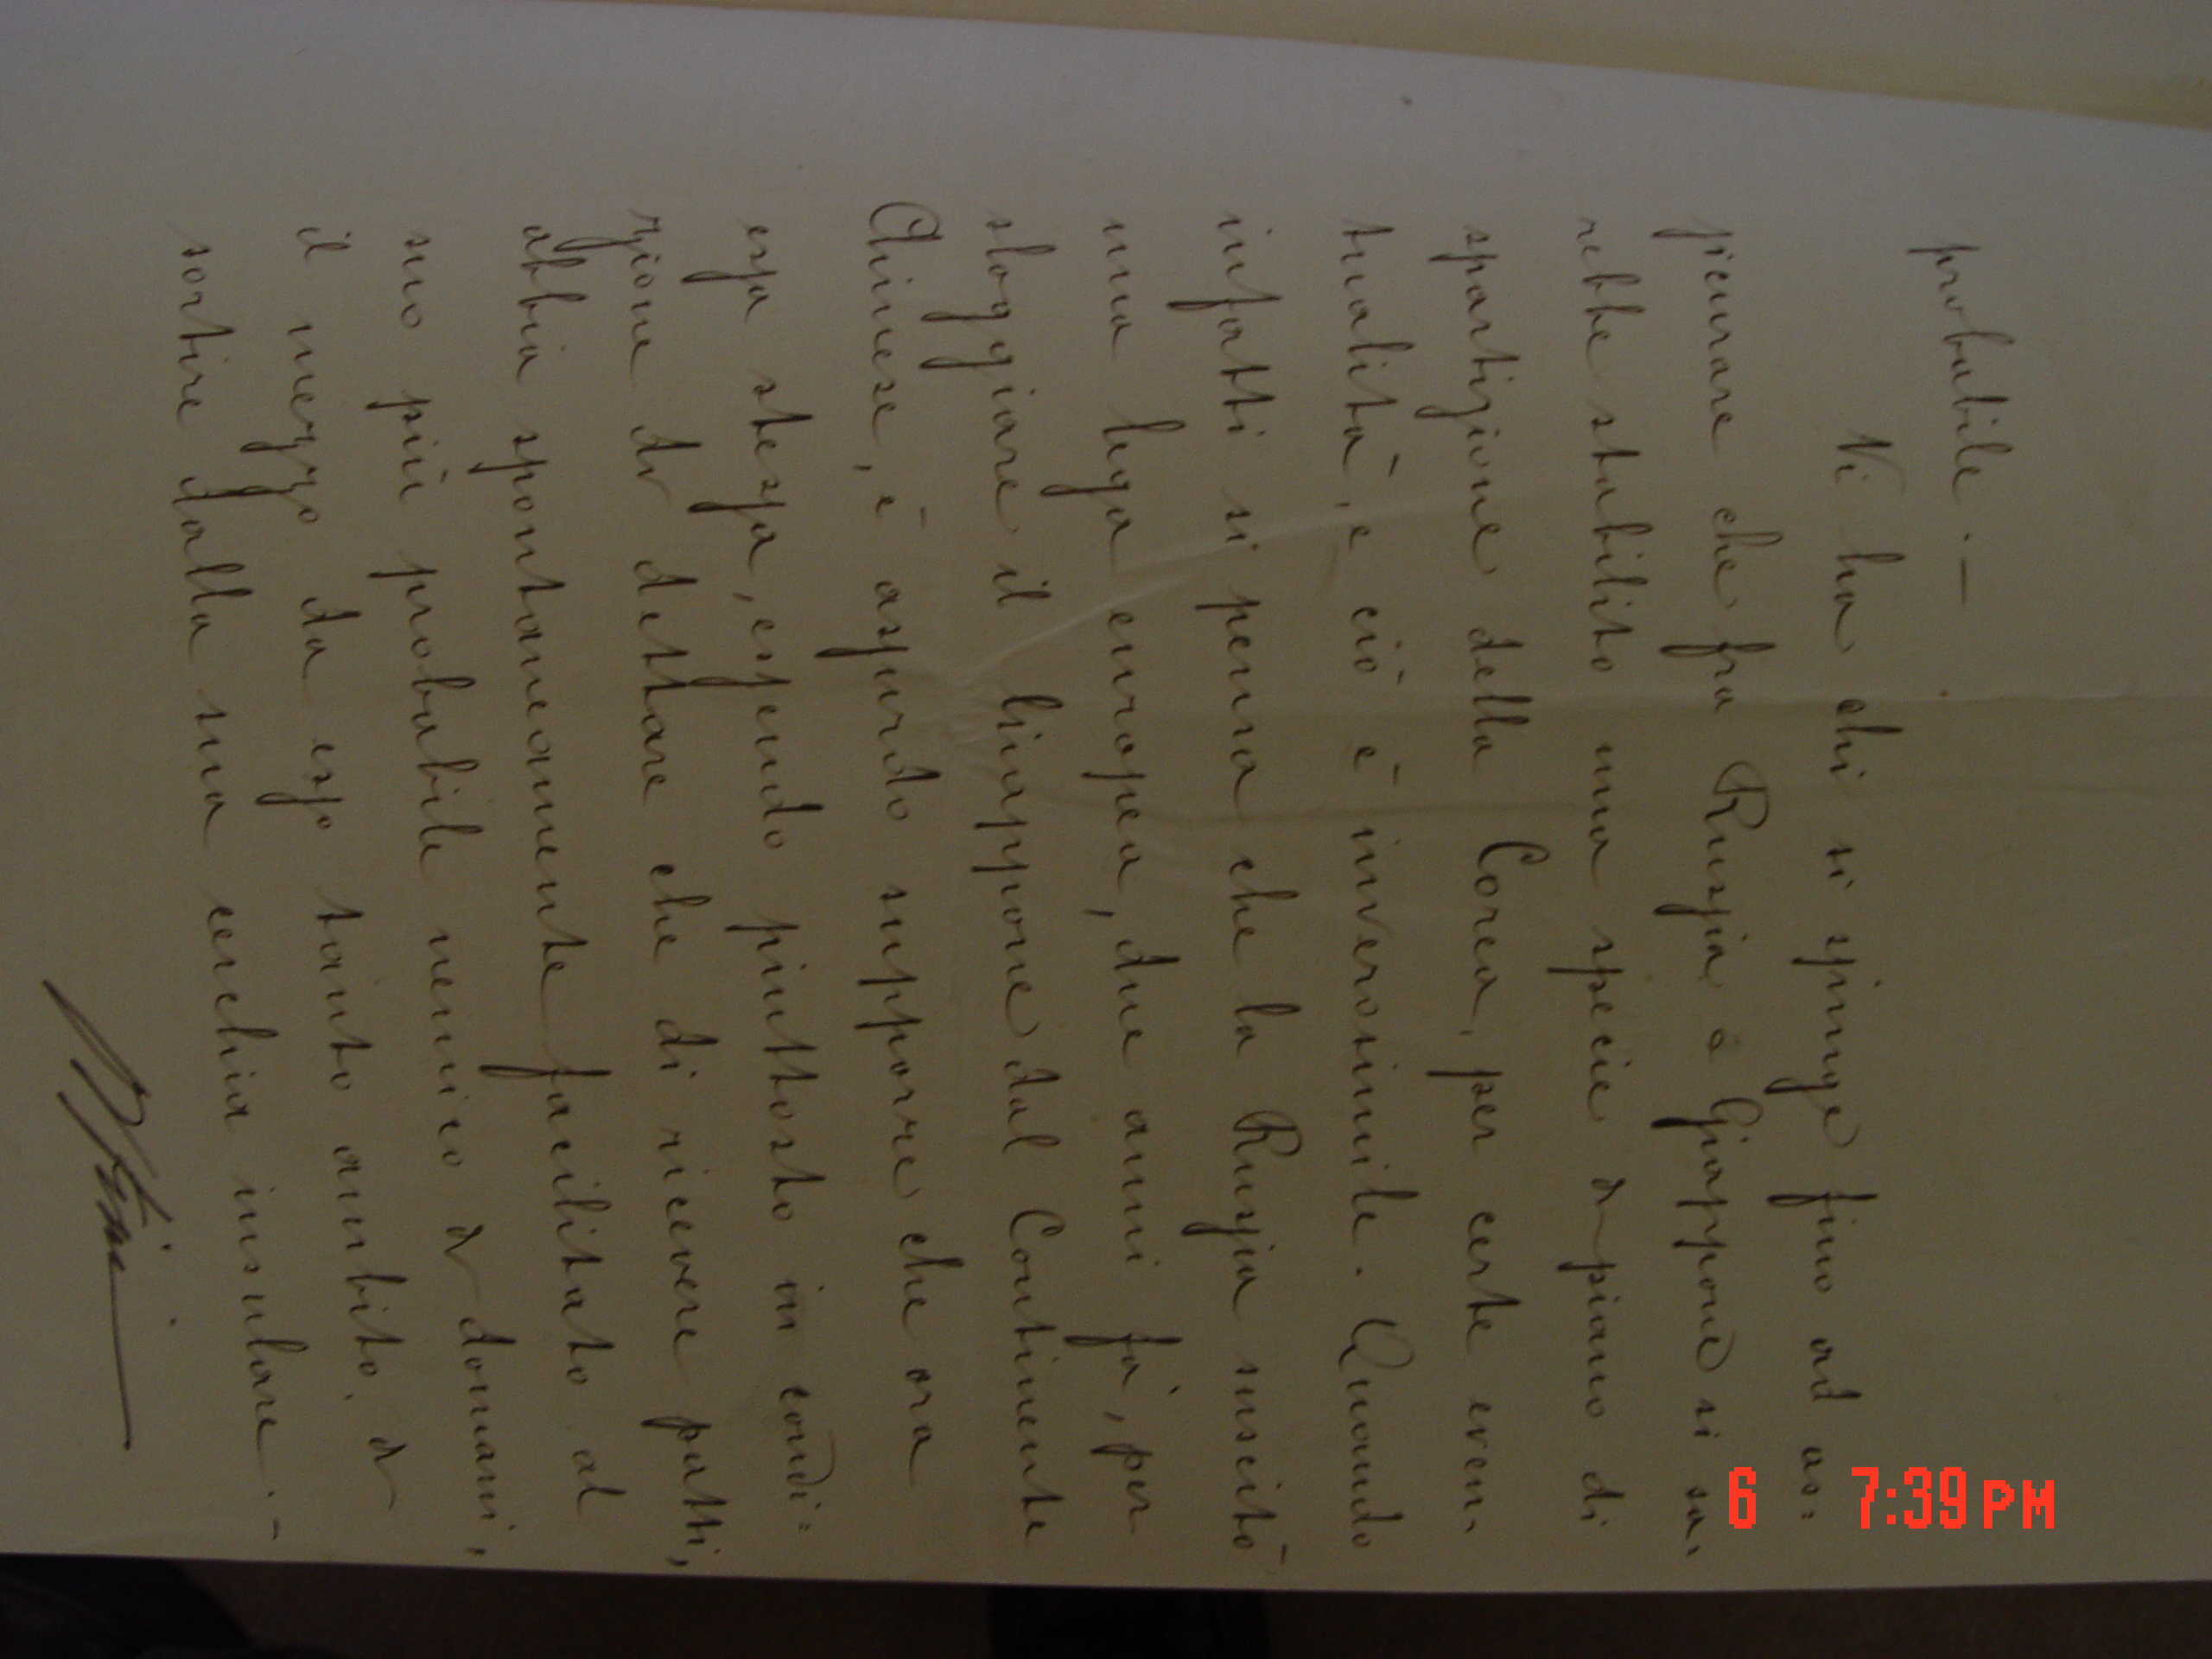 probabile. —
Vi ha chi si spinge fino ad as:
sicurare che fra Russia e Giappone si sa.
rebbe stabilito una specie di piano di
spartizione della Corea, per certe even.
tualità, e ciò è inverosimile. Quando
infatti si pensa che la Russia suscitò
una lega europea, due anni fa, per
sloggiare il Giappone dal Continente
Chinese, è assurdo supporre che ora
essa stessa, essendo piuttosto in condi:
zione di dettare che di ricevere patti,
abbia spontaneamente facilitato al
suo più probabile nemico di domani,
il mezzo da esso tanto ambito, di
sortire dalla sua cerchia insulare. —
6 7:39 PM